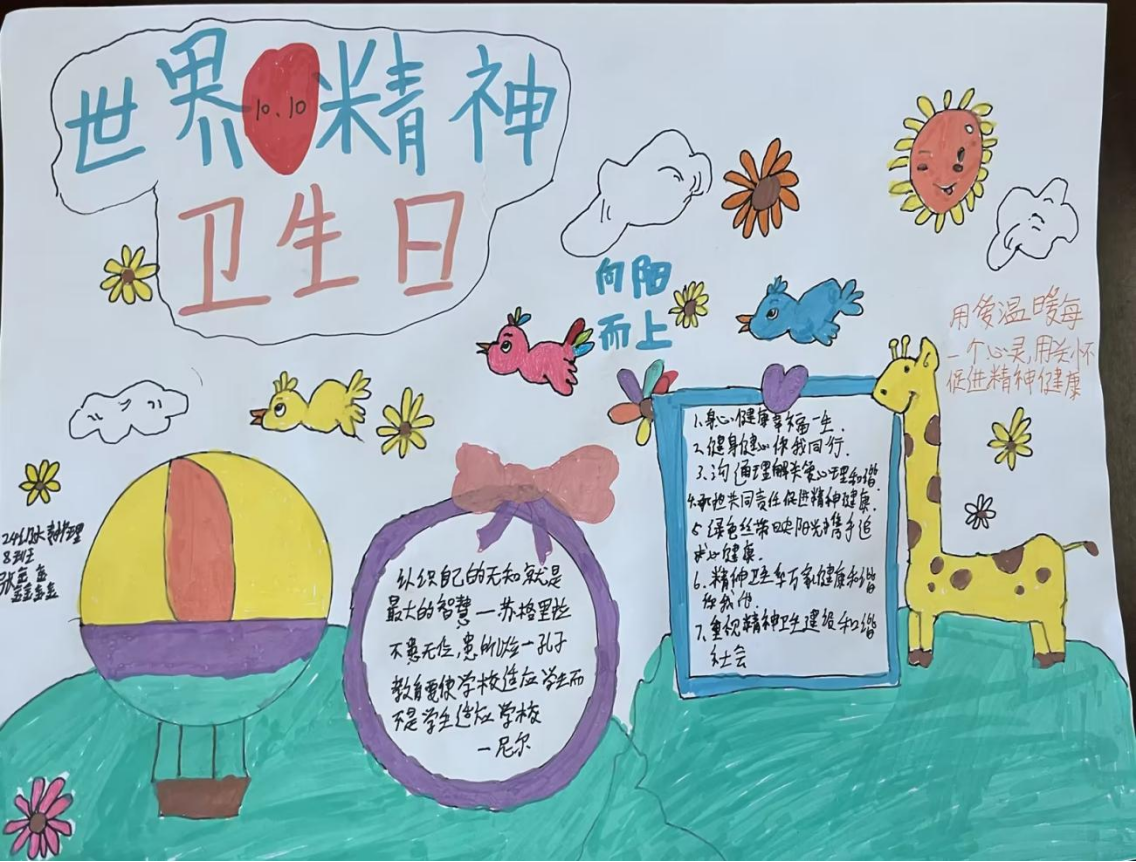 世界 精神
10、10
卫生日
向阳
而上
用爱温暖每
一个心灵,用关怀
促进精神健康
1.身心健康幸福一生.
2.健身健心你我同行.
3.沟通理解关爱心理和谐.
4.承担共同责任促进精神健康.
5.绿色丝带映阳光携手追
求心健康.
6.精神卫生万家健康和谐
你我他.
7.重视精神卫生建设和谐
社会
认识自己的无知就是
最大的智慧—苏格里
不患无位,患所以—孔子
教育要使学校适应学生而
不是学生适应学校
—尼尔
24级 护理
8班
张